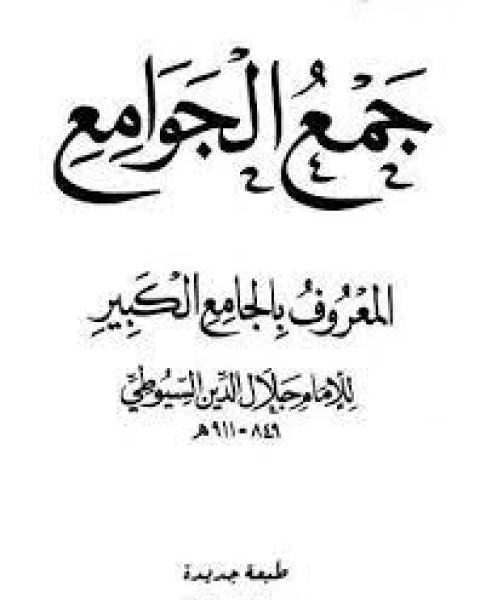 جَمْعُ الْجَوَامِعِ
المَعْرُوفُ بِالجَامِعِ الكَبِيرِ
لِلإِمَامِ جَلَالِ الدِّينِ السُّيُوطِيِّ
٨٤٩ - ٩١١هـ
طبعة جديدة